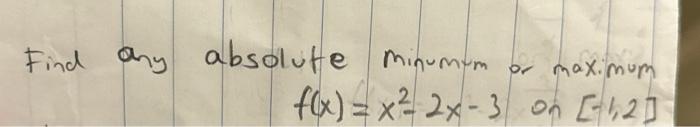 Find any absolute minumum or maximum
f(x) = x² - 2x - 3 on [-1,2]